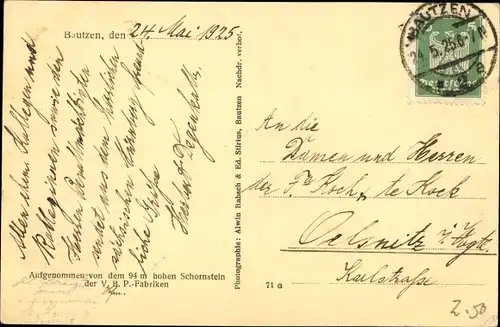 Bautzen, den 24. Mai 1925
Allen ehem. Kollegen und
Kolleginnen sowie den
Herren
sendet aus dem
sächsischen Nürnberg freund
liche Grüße
Herbert Degenkolb.
Aufgenommen von dem 94 m hohen Schornstein
der V. B. P.-Fabriken
Photographie: Alwin Rabsch & Ed. Stirius, Bautzen Nachdr. verbot.
71 a
BAUTZEN
An die
Damen und Herren
der Fa Koch & te Kock
Oelsnitz i. Vogtl.
Karlstraße
2.50